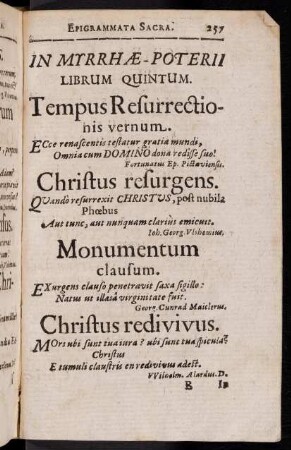 EPIGRAMMATA SACRA. 257
IN MYRRHÆ-POTERII
LIBRUM QUINTUM.
Tempus Resurrectio-
nis vernum.
ECce renascentis testatur gratia mundi,
Omnia cum DOMINO dona redisse suo!
Fortunatus Ep. Pictaviensis.
Christus resurgens.
QUando resurrexit CHRISTUS, post nubila
Phœbus
Aut tunc, aut nunquam clarius emicuit.
Ioh. Georg.
Monumentum
clausum.
EXurgens clauso penetravit saxa sigillo:
Natus ut illæsâ virginitate fuit.
Georg. Cunrad Maiclerus.
Christus redivivus.
MOrs ubi sunt tua jura? ubi sunt tua spicula?
Christus
E tumuli claustris en redivivus adest.
VVilhelm. Alardus. D.
R